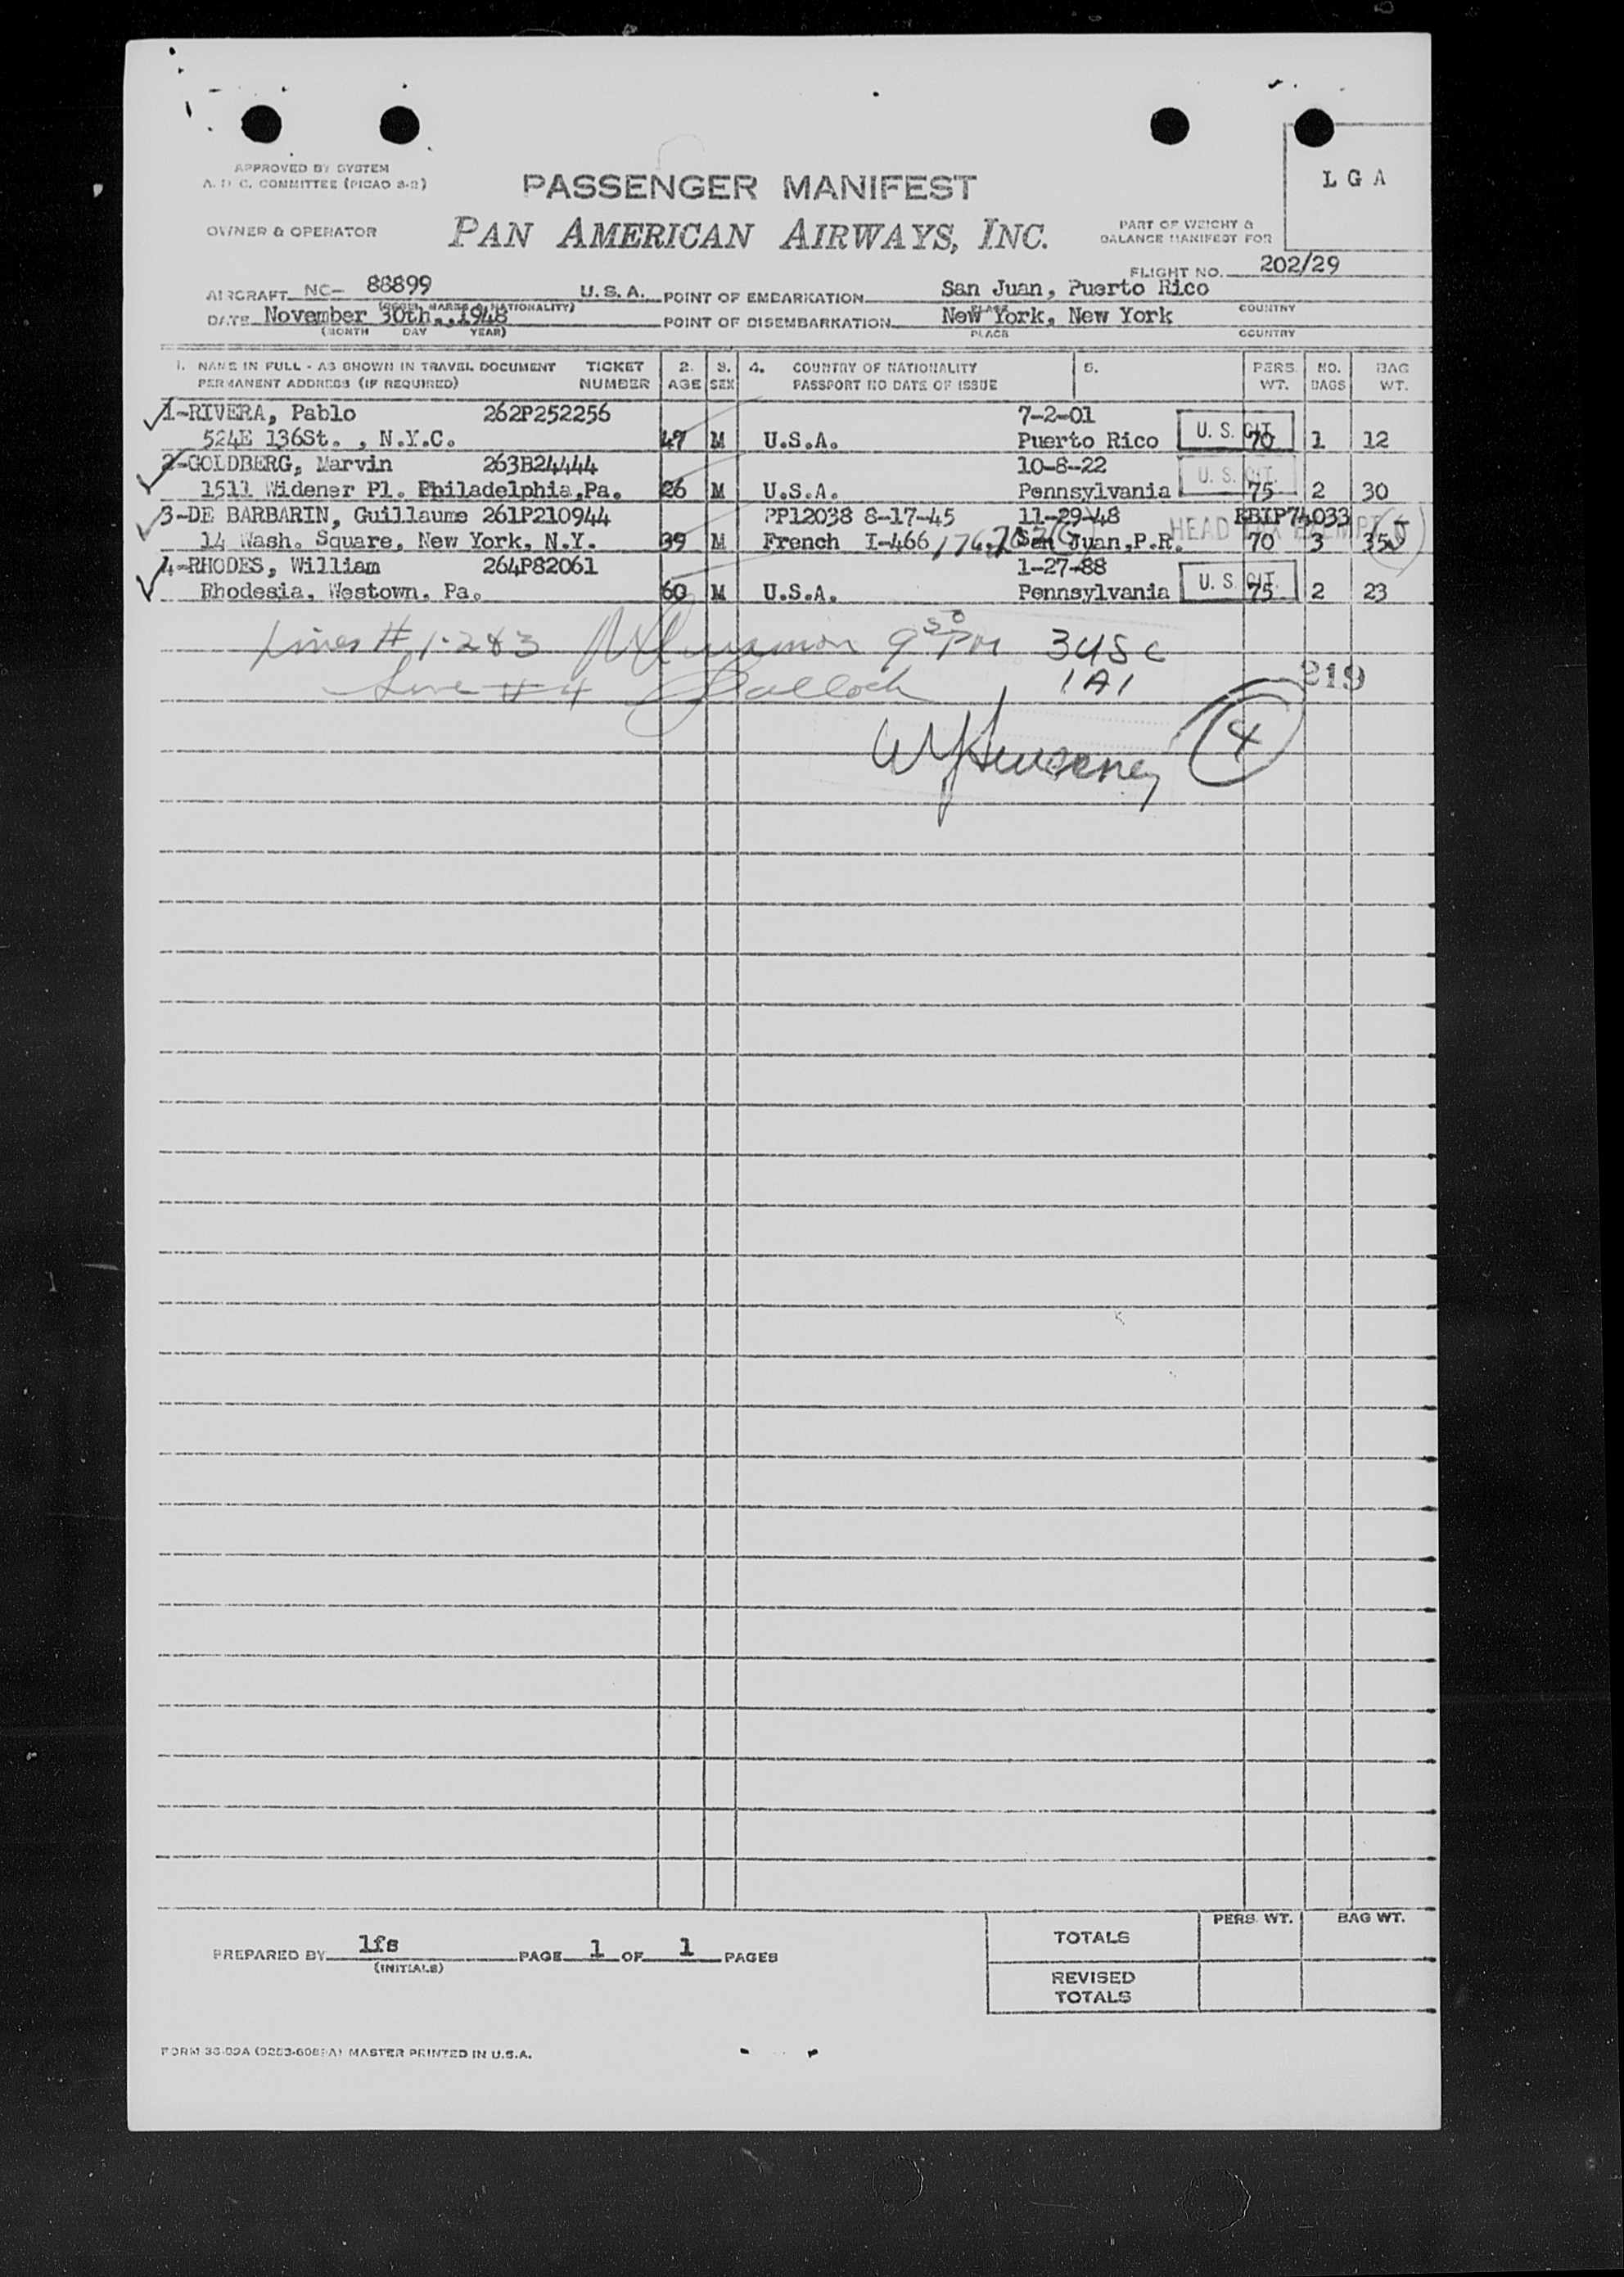 APPROVED BY SYSTEM
COMMITTEE (PICAO
PASSENGER MANIFEST
LGA
OWNER & OPERATOR
PAN AMERICAN AIRWAYS, INC.
PART OF WEIGHT &
BALANCE MANIFEST FOR
FLIGHT NO. 202/29
AIRCRAFT NC- 88899 U.S.A. POINT OF EMBARKATION San Juan, Puerto Rico
PLACE COUNTRY
DATE November 30th.,1948 POINT OF DISEMBARKATION New York, New York
(MONTH DAY YEAR) PLACE COUNTRY
1. NAME IN FULL - AS SHOWN IN TRAVEL DOCUMENT TICKET 2. 3. 4. COUNTRY OF NATIONALITY 5. PERS. NO. BAG
PERMANENT ADDRESS (IF REQUIRED) NUMBER AGE SEX PASSPORT NO DATE OF ISSUE WT. BAGS WT.
1-RIVERA, Pablo 262P252256 7-2-01
524E 136St. , N.Y.C. 47 M U.S.A. Puerto Rico U. S. CIT. 70 1 12
2-GOLDBERG, Marvin 263B24444 10-8-22
1511 Widener Pl. Philadelphia,Pa. 26 M U.S.A. Pennsylvania U. S. CIT. 75 2 30
3-DE BARBARIN, Guillaume 261P210944 PP12038 8-17-45 11-29-48 RBIP74033
14 Wash. Square, New York, N.Y. 39 M French I-466 San Juan,P.R. HEAD TAX EXEMPT 70 3 35
4-RHODES, William 264P82061 1-27-88
Rhodesia, Westown, Pa. 60 M U.S.A. Pennsylvania U. S. CIT. 75 2 23
Lines # 1-2&3 9 30 PM 3 USC
Line # 4 1 A1 219
4
TOTALS PERS. WT. BAG WT.
PREPARED BY lfs PAGE 1 OF 1 PAGES
(INITIALS)
REVISED
TOTALS
FORM MASTER PRINTED IN U.S.A.